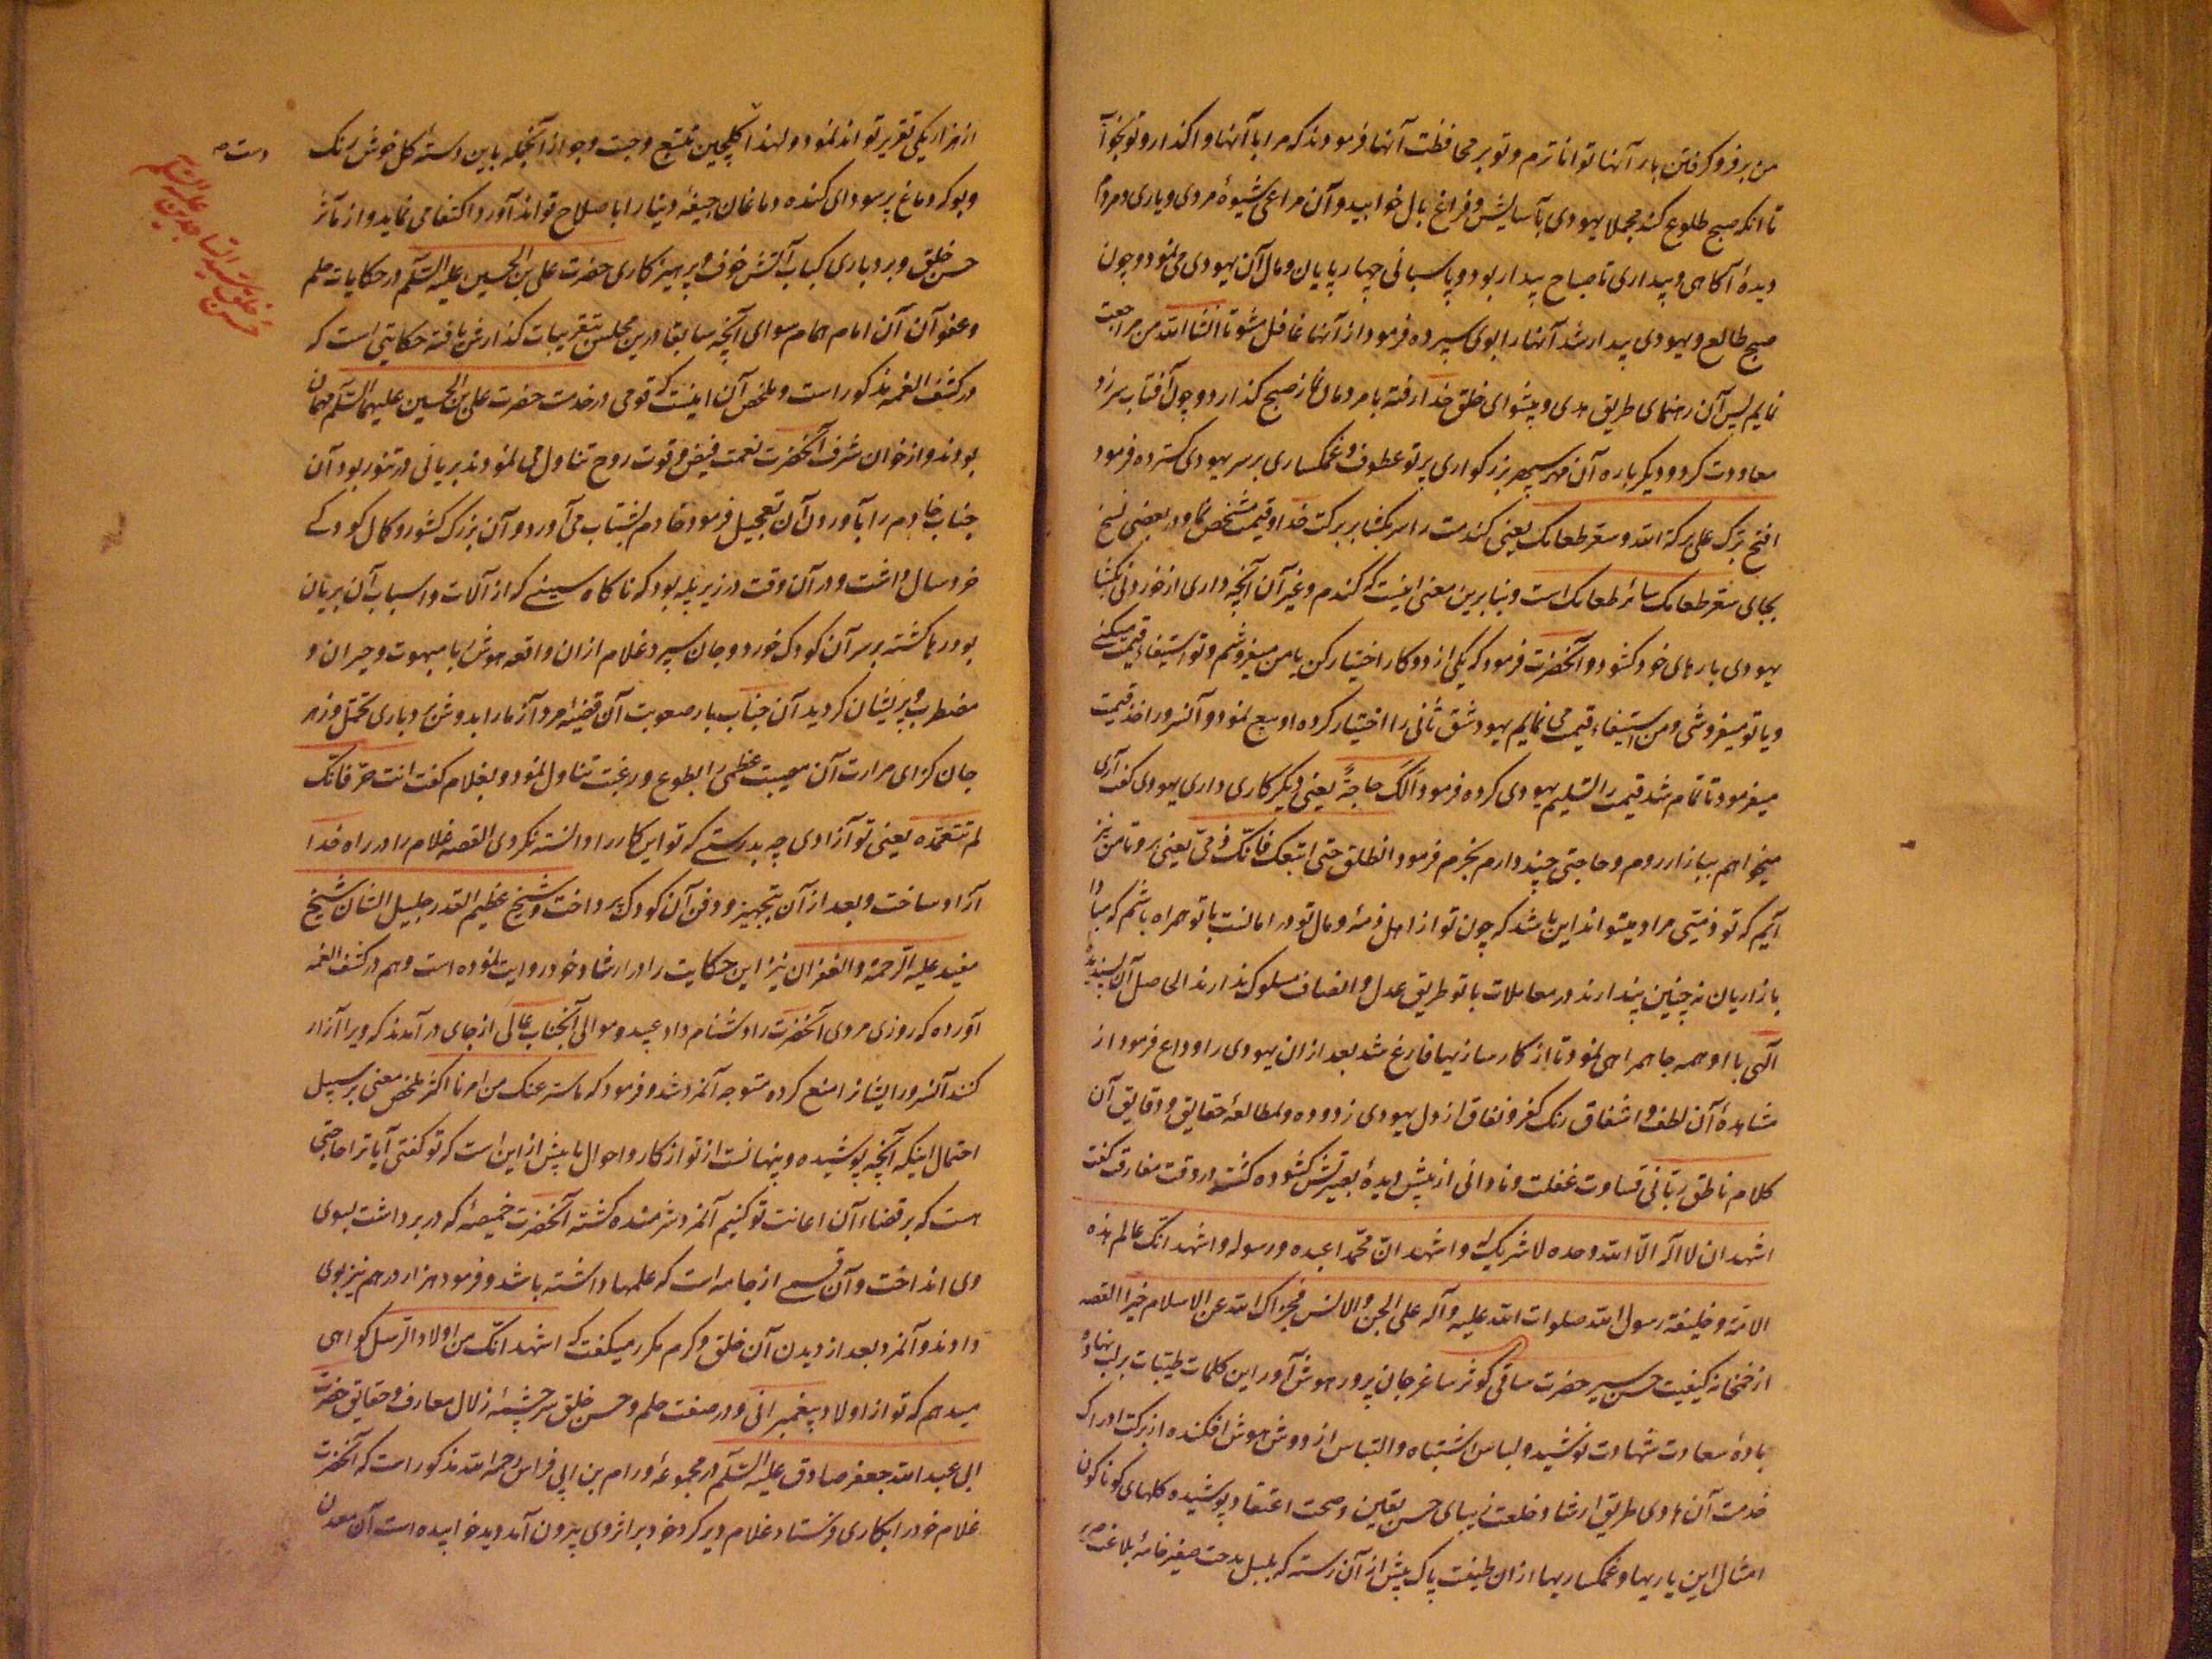 من برفرو کرفتن بار آنها تواناترم و تو بر محافظت آنها فرمودند که مرا با آنها واکذار و تو بخواب
تا انکه صبح طلوع کند مجملا یهودی بآسایش و فراغ بال خوابید و آن مراعی شیوهٔ مردی و یاری و مردم
دیدهٔ آکاهی و بیداری تا صباح بیدار بود و پاسبانی چهارپایان و مال آن یهودی می نمود و چون
صبح طالع و یهودی بیدار شد آنها را بوی سپرده فرمود از آنها غافل مشو تا انشا الله من مراجعت
نمایم پس آن رهنمای طریق هدی و پیشوای خلق خدا رفته با مردمان نماز صبح کذارد و چون آفتاب سرزد
معاودت کرد و دیکر باره آن مهر سپهر بزرکواری پرتو عطوفت و غمکساری بر سر یهودی کسترده فرمود
افتح برک علی برکة الله و سعر طعامک یعنی کندمت را سر بکشا بر برکت خدا و قیمت مشخص نما و در بعضی نسخ
بجای سعر طعامک سائر طعامک است و بنابرین معنی اینست که کندم و غیر آن آنچه داری از خوردنی بکشا
یهودی بارهای خود کشود و آنحضرت فرمود که یکی از دو کار اختیار کن یا من میفروشم و تو استیفاء قیمت میکنے
و یا تو میفروشی و من استیفاء قیمت می نمایم یهود شق ثانی را اختیار کرده او بیع نمود و آنسرور اخذ قیمت
میفرمود تا تمام شد قیمت را تسلیم یهودی کرده فرمود الک حاجة یعنی دیکر کاری داری یهودی کفت آری
میخواهم ببازار روم و حاجتی چند دارم بخرم فرمود انطلق حتی اتبعک فانک ذمی یعنی برو تا من نیز
آیم که تو ذمیتی مراد میتواند این باشد که چون تو از اهل ذمهٔ و مال تو در امانست با تو همراه باشم که مبادا
بازاریان نه چنین پندارند در معاملات با تو طریق عدل و انصاف مسلوک ندارند الحاصل آن پسندیدهٔ
آلهی با او همه جا همراهی نمود تا از کارسازیها فارغ شد بعد ازان یهودی را وداع فرمود از
مشاهدهٔ آن لطف و اشفاق رنک کفر و نفاق از دل یهودی زدوده و بمطالعهٔ حقایق و دقایق آن
کلام ناطق ربّانی قساوت غفلت و نادانی از پیش دیدهٔ بصیرتش کشوده کشته در وقت مفارقت کفت
اشهد ان لا اله الّا الله وحده لا شریک له و اشهد انّ محمّدا عبده و رسوله و اشهد انّک عالم هذه
الامّة و خلیفة رسول الله صلوات الله علیه و آله علی الجن و الانس فجزاک الله عن الاسلام خیرا القصه
از خمخانهٔ کیفیت حسن سیر حضرت ساقی کوثر ساغر جان پرور هوش آور این کلمات طیّبات بر لب نهاده
بادهٔ سعادت شهادت نوشید و لباس اشتباه و التباس از دوش هوش افکنده از برکت ادراک
خدمت آن هادی طریق ارشاد خلعت زیبای حسن یقین و صحت اعتقاد پوشیده کلهای کوناکون
امثال این یاریها و غمکساریها ازان طینت پاک بیش از آن رسته که بلبل مدحت صفیر خامهٔ بلاغت صریر
از هزار یکی تقریر تواند نمود و لهذا کلچین تتبع وجست وجو از آنجمله باین دستهٔ کل خوش رنک
و بو که دماغ پر سودای کنده دماغان جیفهٔ دنیا را با صلاح تواند آورد اکتفا می نماید و از مآثر
حسن خلق و بردباری کباب آتش خوف و پرهیزکاری حضرت علی بن الحسین علیه السّلم در حکایات حلم
و عفو آن آن امام همام سوای آنچه سابقا درین مجلس بتقریبات کذارش یافته حکایتی است که
در کشف الغمه مذکور است و ملخص آن اینست که قومی در خدمت حضرت علی بن الحسین علیهما السّلم مهمان
بودند و از خوان شرف آنحضرت نعمت فیض و قوت روح تناول می نمودند بریانی در تنور بود آن
جناب خادم را بآوردن آن تعجیل فرمود خادم بشتاب می آورد و آن بزرک کشور کمال کودکے
خردسال داشت و در آن وقت در زیر پله بود که ناکاه سیخے که از آلات و اسباب آن بریان
بود رها کشته بر سر آن کودک خورد و جان سپرد غلام ازان واقعه هوش ربا مبهوت و حیران و
مضطرب و پریشان کردید آن جناب بار صعوبت آن قضیّه مرد آزما را بدوش بردباری تحمّل و زهر
جان کزای مرارت آن مصیبت عظمی را بطوع و رغبت تناول نمود و بغلام کفت انت حرّ فانّک
لم تتعمّده یعنی تو آزادی چه بدرستے که تو این کار را دانسته نکردی القصه غلام را در راه خدا
آزاد ساخت و بعد از آن بتجهیز و دفن آن کودک پرداخت و شیخ عظیم القدر جلیل الشان شیخ
مفید علیه الرّحمة و الغفران نیز این حکایت را در ارشاد خود روایت نموده است و هم در کشف الغمه
آورده که روزی مردی آنحضرت را دشنام داد عبید و موالی آنجناب عالی از جای در آمدند که ویرا آزار
کنند آنسرور ایشانرا منع کرده متوجه آنمرد شد و فرمود که ما ستر عنک من امرنا اکثر ملخص معنی بر سبیل
احتمال اینکه آنچه پوشیده و پنهانست از تو از کار و احوال ما بیش از این است که تو کفتی آیا ترا حاجتی
هست که بر قضاء آن اعانت تو کنیم آنمرد شرمنده کشته آنحضرت خمیصهٔ که در بر داشت بسوی
وی انداخت و آن قسمے از جامه است که علمها داشته باشد و فرمود هزار درهم نیز بوی
دادند و آنمرد بعد از دیدن آن خلق و کرم مکرر میکفت که اشهد انّک من اولاد الرّسل کواهی
میدهم که تو از اولاد پیغمبرانی و در صفت حلم و حسن خلق سرچشمهٔ زلال معارف و حقایق حضرت
ابی عبد الله جعفر صادق علیه السّلم در مجموعهٔ ورام بن ابی فراس رحمه الله مذکور است که آنحضرت
غلام خود را بکاری فرستاد غلام دیر کرد خود بر اثر وی بیرون آمد دید خوابیده است آن معدن
حسن خلق سید الساجدین علیه السّلم